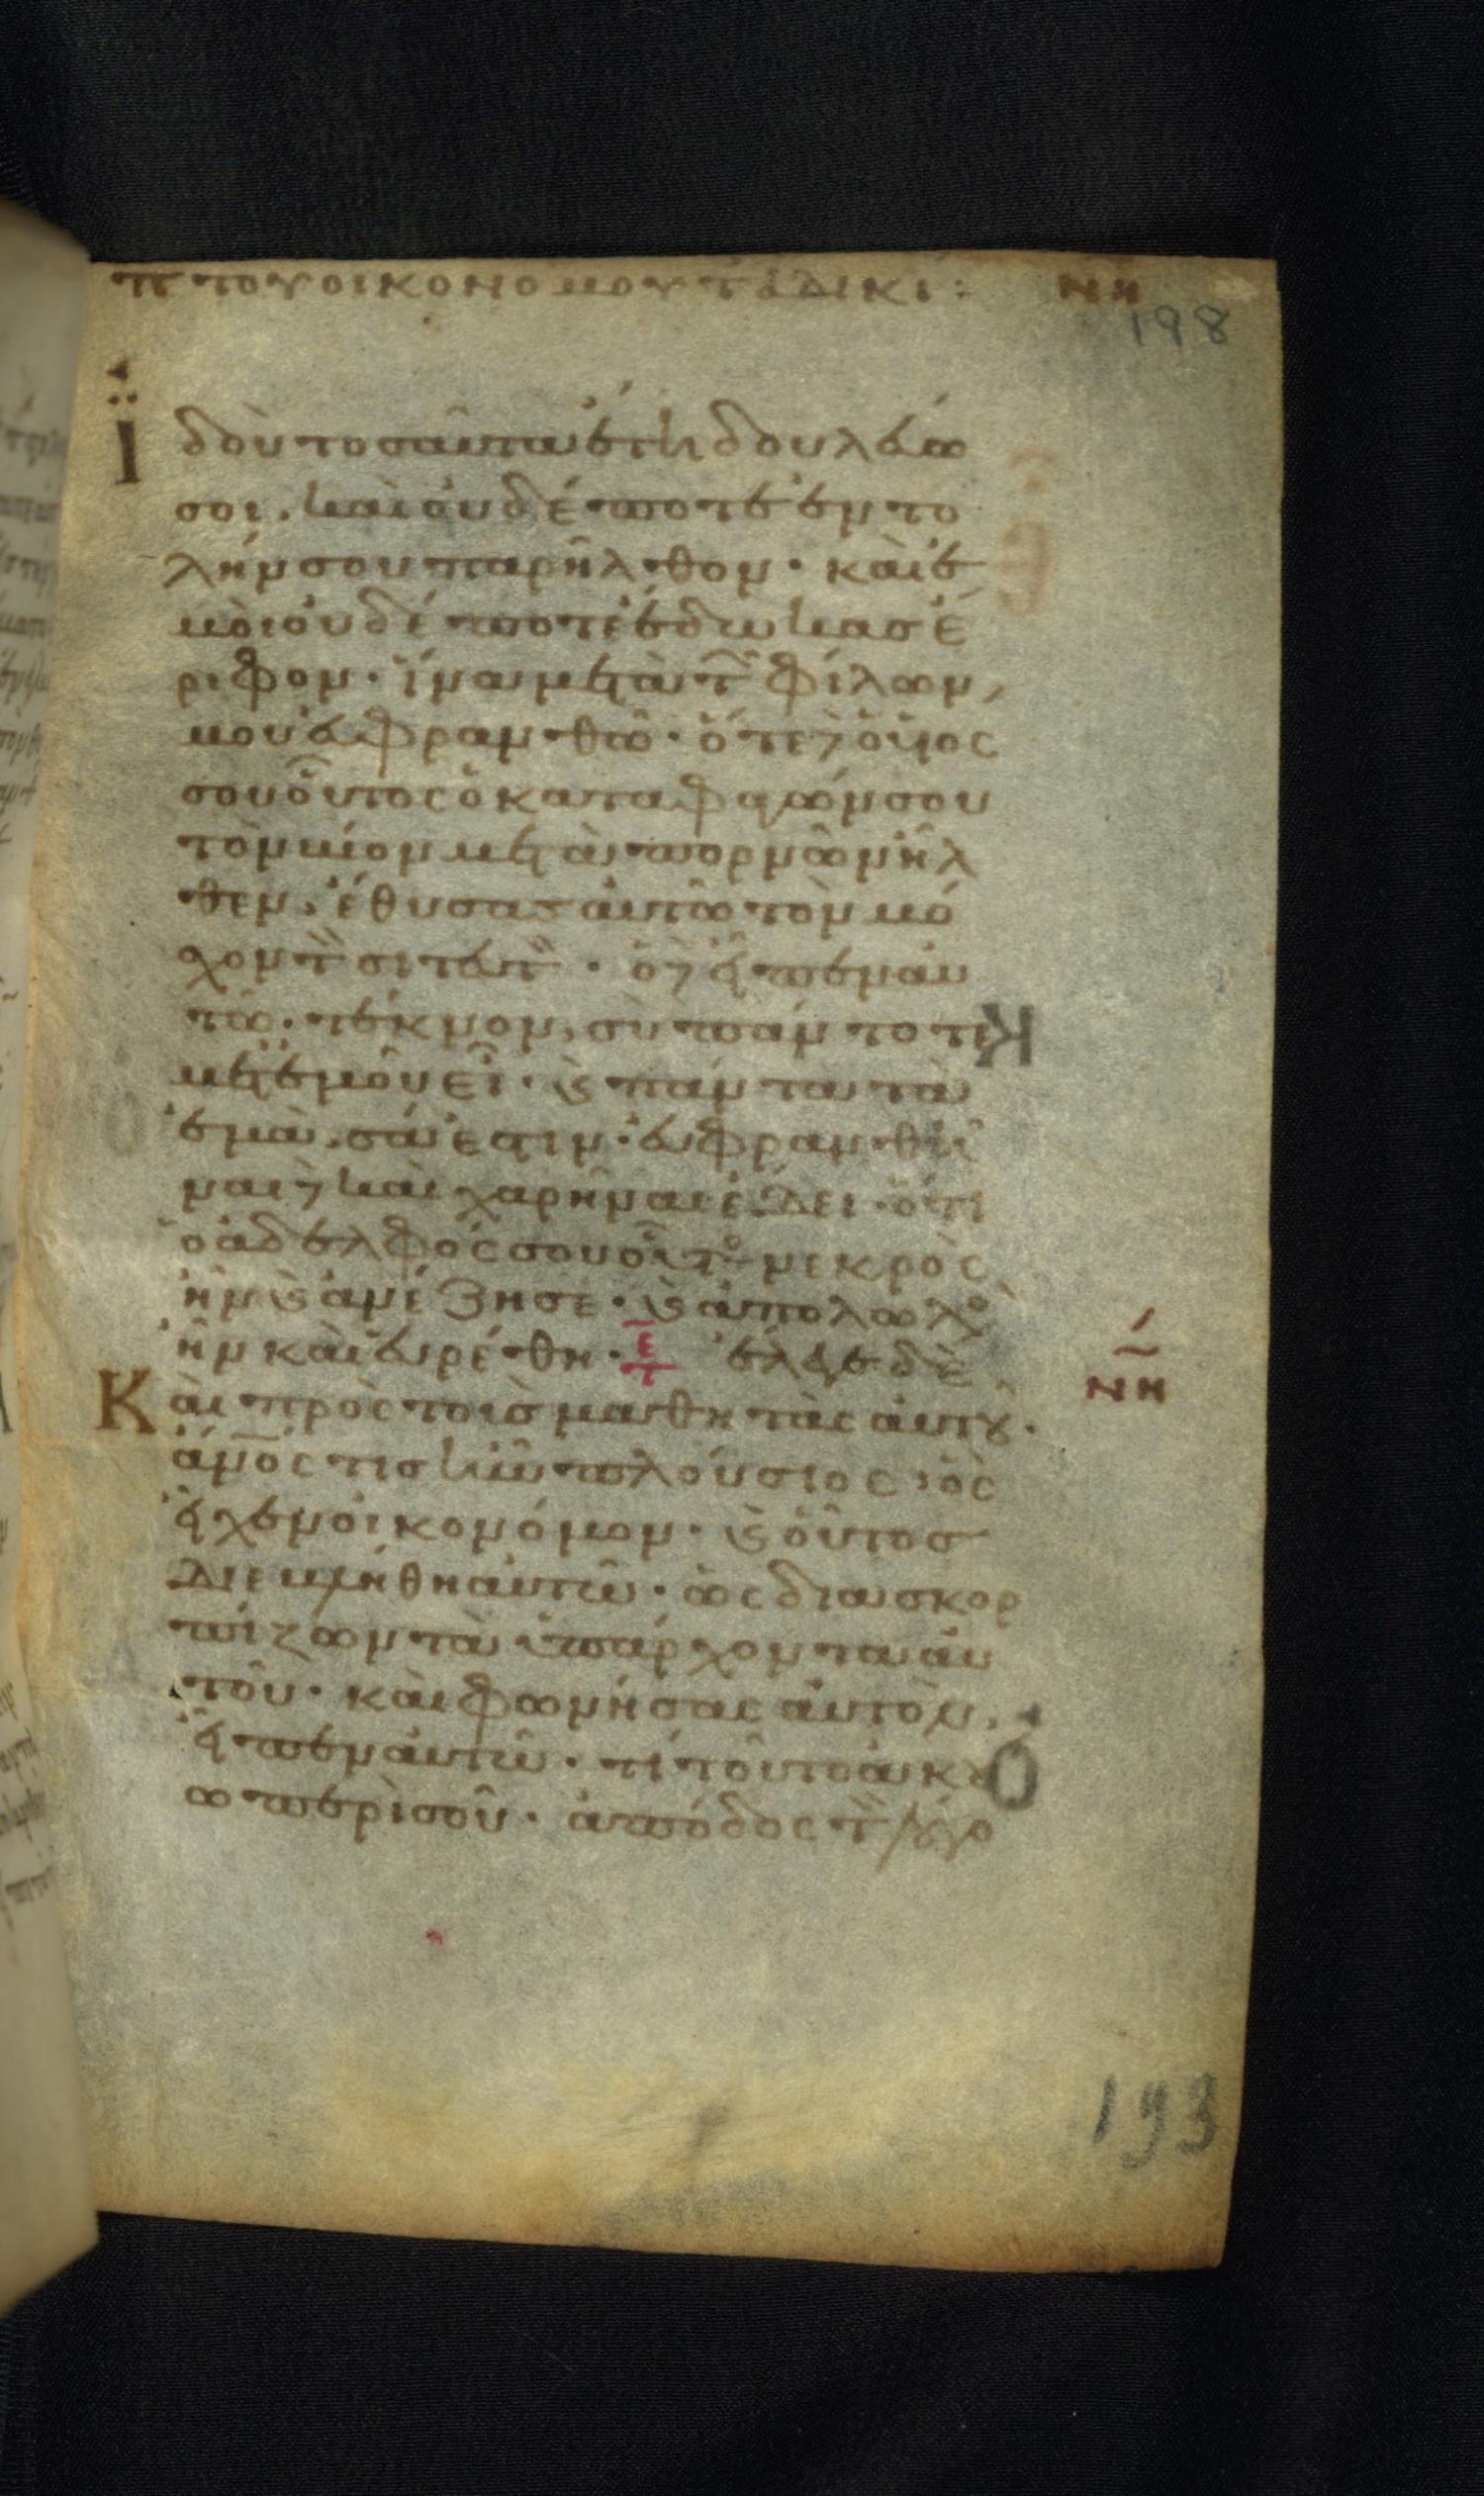 π του οικονομου τ αδικι: νη
198
Ϊδοὺ τοσαῦτα ἔτη δουλεύω
σοι. καὶ οὐδέποτε ἐντο
λήν σου παρῆλθον· καὶ ἐ
μοὶ οὐδέποτε ἔδωκας ἔ
ριφον· ἵνα μετὰ τ φίλων
μου εὐφρανθῶ· ὅτε δὲ ὁ υἱός
σου οὗτος ὁ καταφαγών σου
τὸν βίον μετὰ πορνῶν ἦλ
θεν, ἔθυσας αὐτῶ τὸν μό
χον τ σιτευτ· ὁ δὲ εἶπεν αὐ
τῶ· τέκνον, σὺ πάντοτε
μετ ἐμοῦ εἶ· ϗ πάντα τὰ
ἐμὰ σά ἐστιν· εὐφρανθῆ
ναι δὲ καὶ χαρῆναι ἔδει· ὅτι
ὁ ἀδελφός σου οὗτο νεκρὸς
ἦν ϗ ἀνέζησε· ϗ ἀπολωλὼ
ἦν καὶ εὑρέθη· ετ ἔλεγε δὲ
Καὶ πρὸς τοὺς μαθητὰς αὐτοῦ·
νη
ἄνος τις ἦν πλούσιος, ὃς
εἶχεν οἰκονόμον· ϗ οὗτος
διεβλήθη αὐτῶ· ὡς διασκορ
πίζων τὰ ὑπάρχοντα αὐ
τοῦ· καὶ φωνήσας αὐτὸν,
εἶπεν αὐτῶ· τί τοῦτο ἀκού
ω περὶ σοῦ· ἀπόδος τ λόγο
193